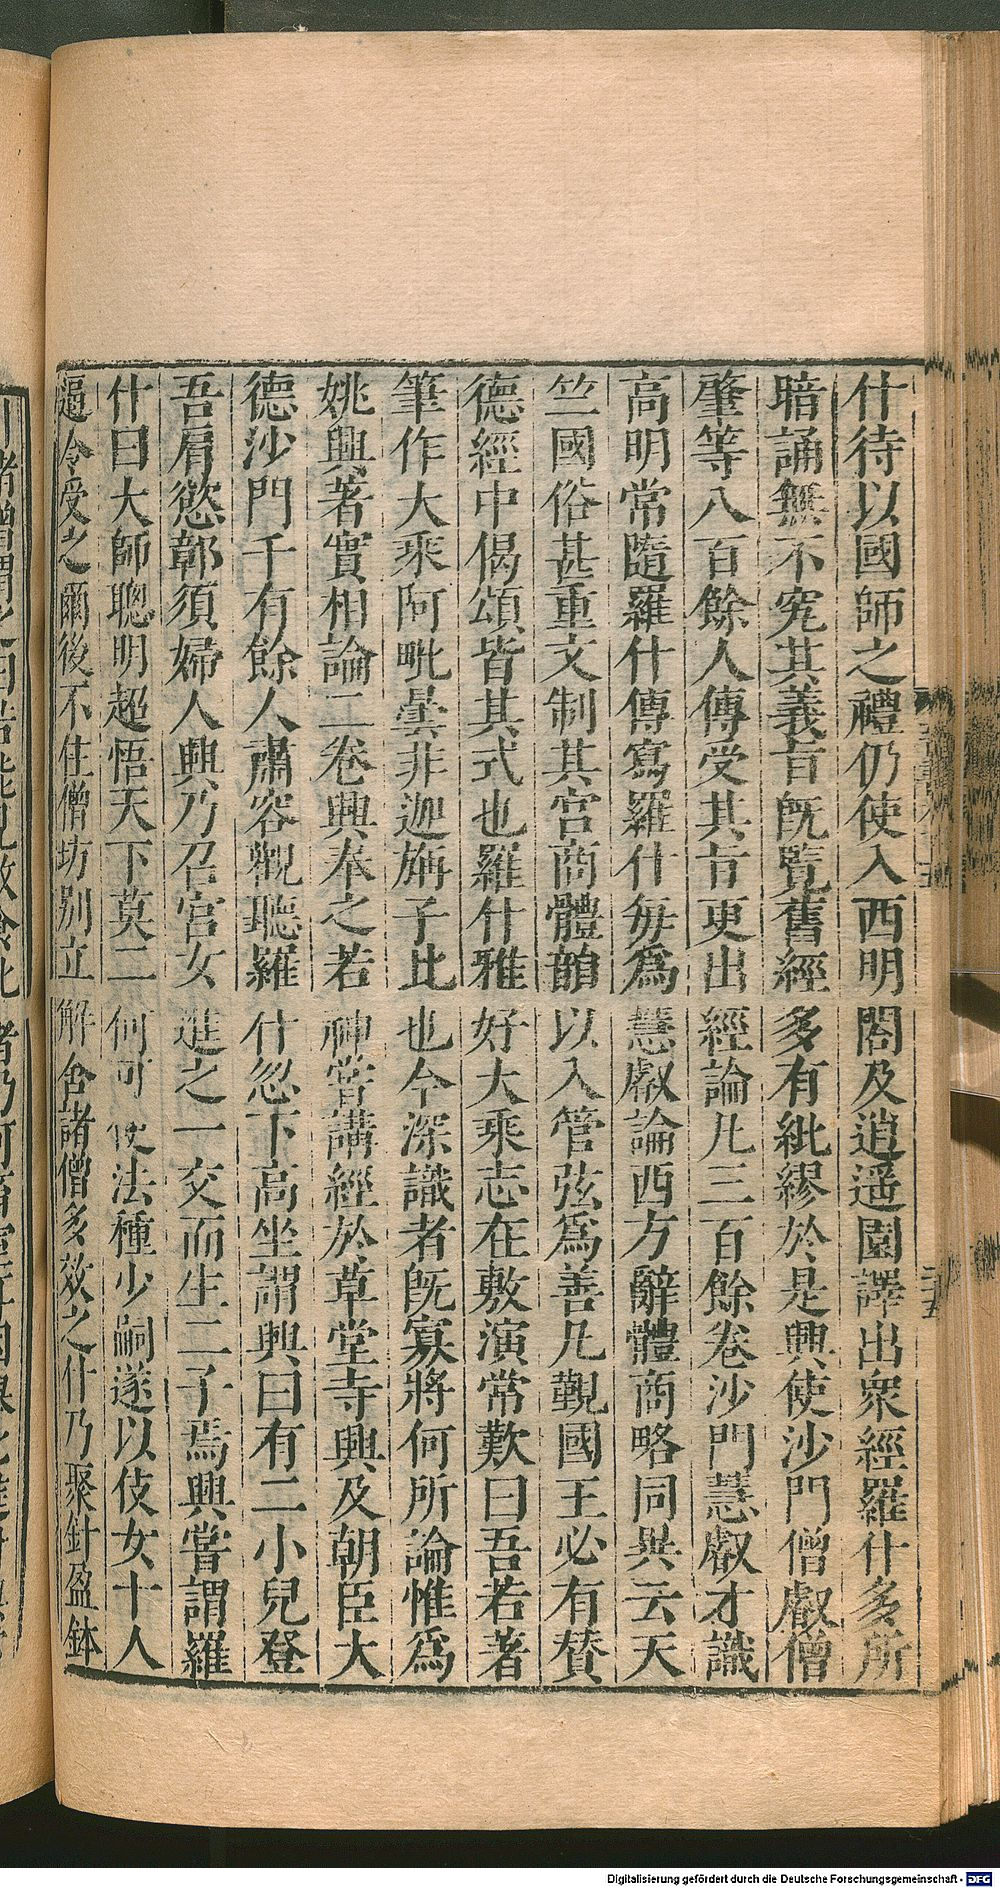 什待以國師之禮仍使入西明閣及逍遥園譯出衆經羅什多所
暗誦無不究其義旨旣覽舊經多有紕繆於是興使沙門僧叡僧
肇等八百餘人傳受其旨更出經論凡三百餘卷沙門慧叡才識
高明常隨羅什傳寫羅什每爲慧叡論西方辭體商略同異云天
竺國俗甚重文制其宫商體韻以入管弦爲善凡覲國王必有贊
德經中偈頌皆其式也羅什雅好大乘志在敷演常歎曰吾若著
筆作大乘阿毗曇非迦旃子比也今深識者旣寡將何所論惟爲
姚興著實相論二卷興奉之若神嘗講經於草堂寺興及朝臣大
德沙門千有餘人肅容觀聽羅什忽下高坐謂興曰有二小兒登
吾肩慾鄣須婦人興乃召宫女進之一交而生二子焉興嘗謂羅
什曰大師聰明超悟天下莫二何可使法種少嗣遂以伎女十人
逼令受之爾後不住僧坊别立解舍諸僧多效之什乃聚針盈鉢
Digitalisierung gefördert durch die Deutsche Forschungsgemeinschaft - DFG